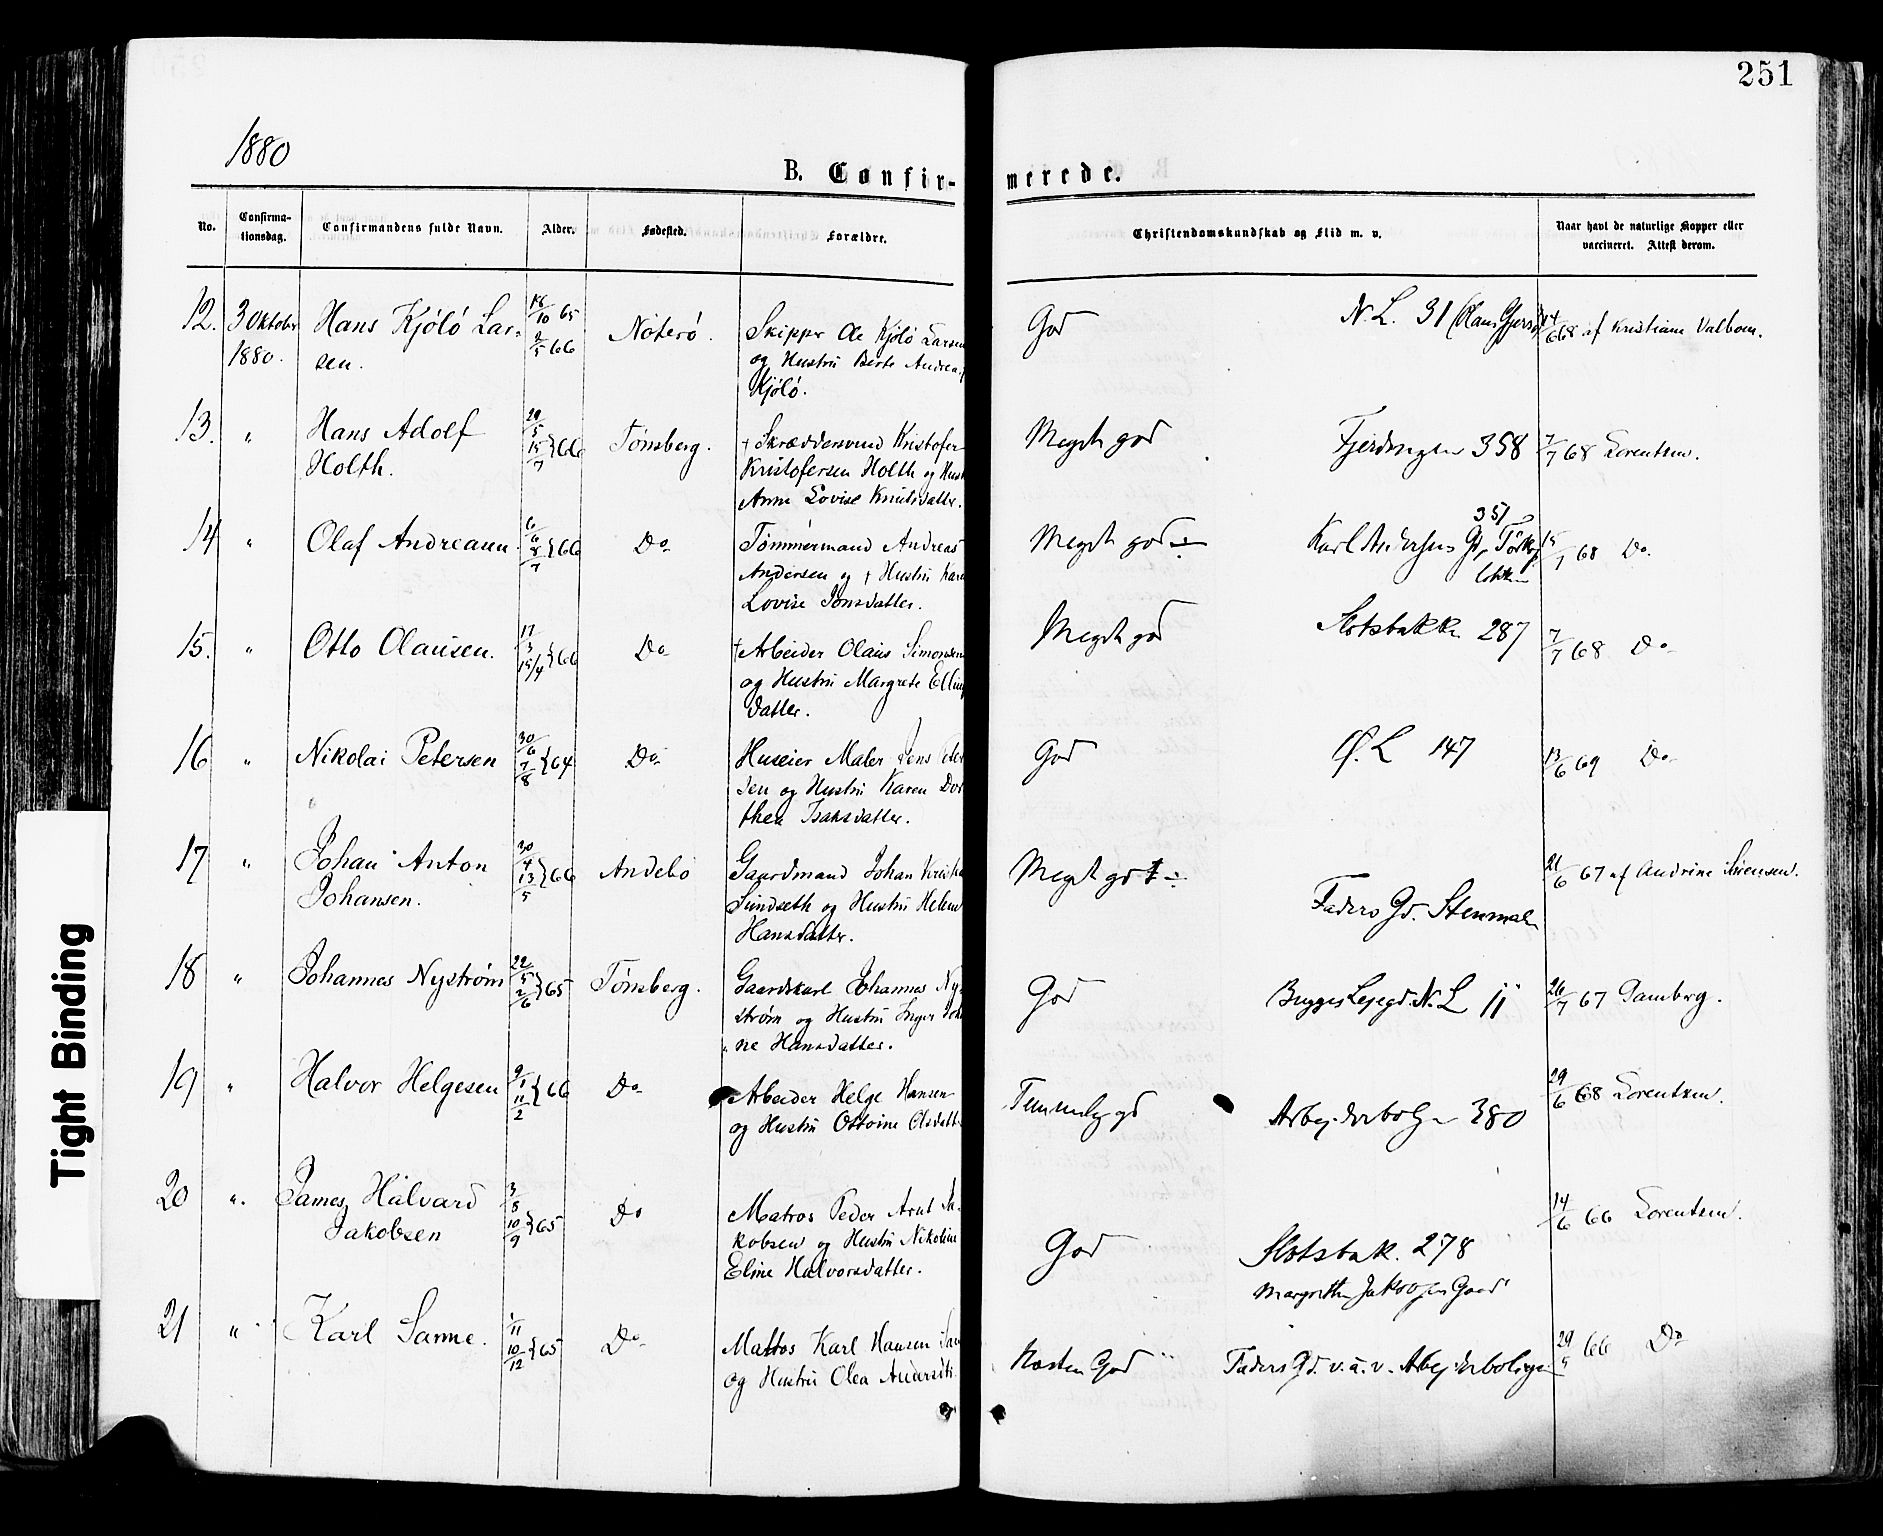 251
1880
B. Confirmerede.
No. Confirmationsdag. Confirmandens fulde Navn. Alder. Fødested. Forældre. Christendomskundskab og Flid m. v. Naar havt de naturlige Kopper eller vaccineret. Attest derom.
12. 3 Oktober 1880. Hans Kjölö Larsen. 18/10 65 2/5 66 Nöterö. Skipper Ole Kjölö Larsen
og Hustru Berte Andrea
Kjölö.
God N. L. 31 14/6 68 af Kristiane Valboem.
13. " Hans Adolf
Holth. 29/5 15/7 } 66 Tönsberg. † Skræddersvend Kristofer
Kristofersen Holth og Hust
Anne Lovise Knutsdatter.
Meget god Fjerdingen 358 7/7 68 Lorentsen.
14 " Olaf Andreasen. 6/7 } 66 Do Tömmermand Andreas
Andersen og † Hustru Karen
Lovise Jonsdatter.
Meget god ÷ 351
Karl Andersens Gd 15/7 68 Do.
15. " Otto Olausen. 17/3 15/4 } 66 Do † Arbeider Olaus Simonsen
og Hustru Margrete Ellings
datter.
Meget god Slotsbakken 287 7/7 68 Do
16 " Nikolai Petersen 30/6 7/8 } 64 Do Huseier Maler Jens Peter
sen og Hustru Karen Doro
thea Isaksdatter.
God Ø. L 147 13/6 69 Do
17 " Johan Anton
Johansen. 30/4 13/5 } 66 Andebö Gaardmand Johan Kristian
Sundseth og Hustru Helene
Hansdatter.
Meget godt ÷ Faders Gd. Stenmalen 21/6 67 af Andrine Sörensen.
18 " Johannes Nyström 22/5 2/6 } 65 Tönsberg. Gaardskarl Johannes Ny
ström og Hustru Inger Joha
ne Hansdatter.
God Bugges Lejegd. N. L 11 26/7 67 Gamborg.
19 " Halvor Helgesen 9/1 11/2 } 66 Do Arbeider Helge Hansen
og Hustru Ottoine Olsdatt
Temmelig god Arbejderboliger 380 29/6 68 Lorentsen.
20 " James Halvard
Jakobsen 3/8 10/9 } 65 Do Matros Peder Arnt Ja-
kobsen og Hustru Nikoline
Eline Halvorsdatter.
God Slotsbak. 278
Margrethe Jakobsens Gaard 14/6 66 Lorentsen.
21 " Karl Sanne. 1/11 10/12 } 65 Do Matros Karl Hansen San
og Hustru Olea Andersdtr.
Næsten God Faders Gd. v. a. v. Arbejderboligen 29/5 66 Do
Tight Binding